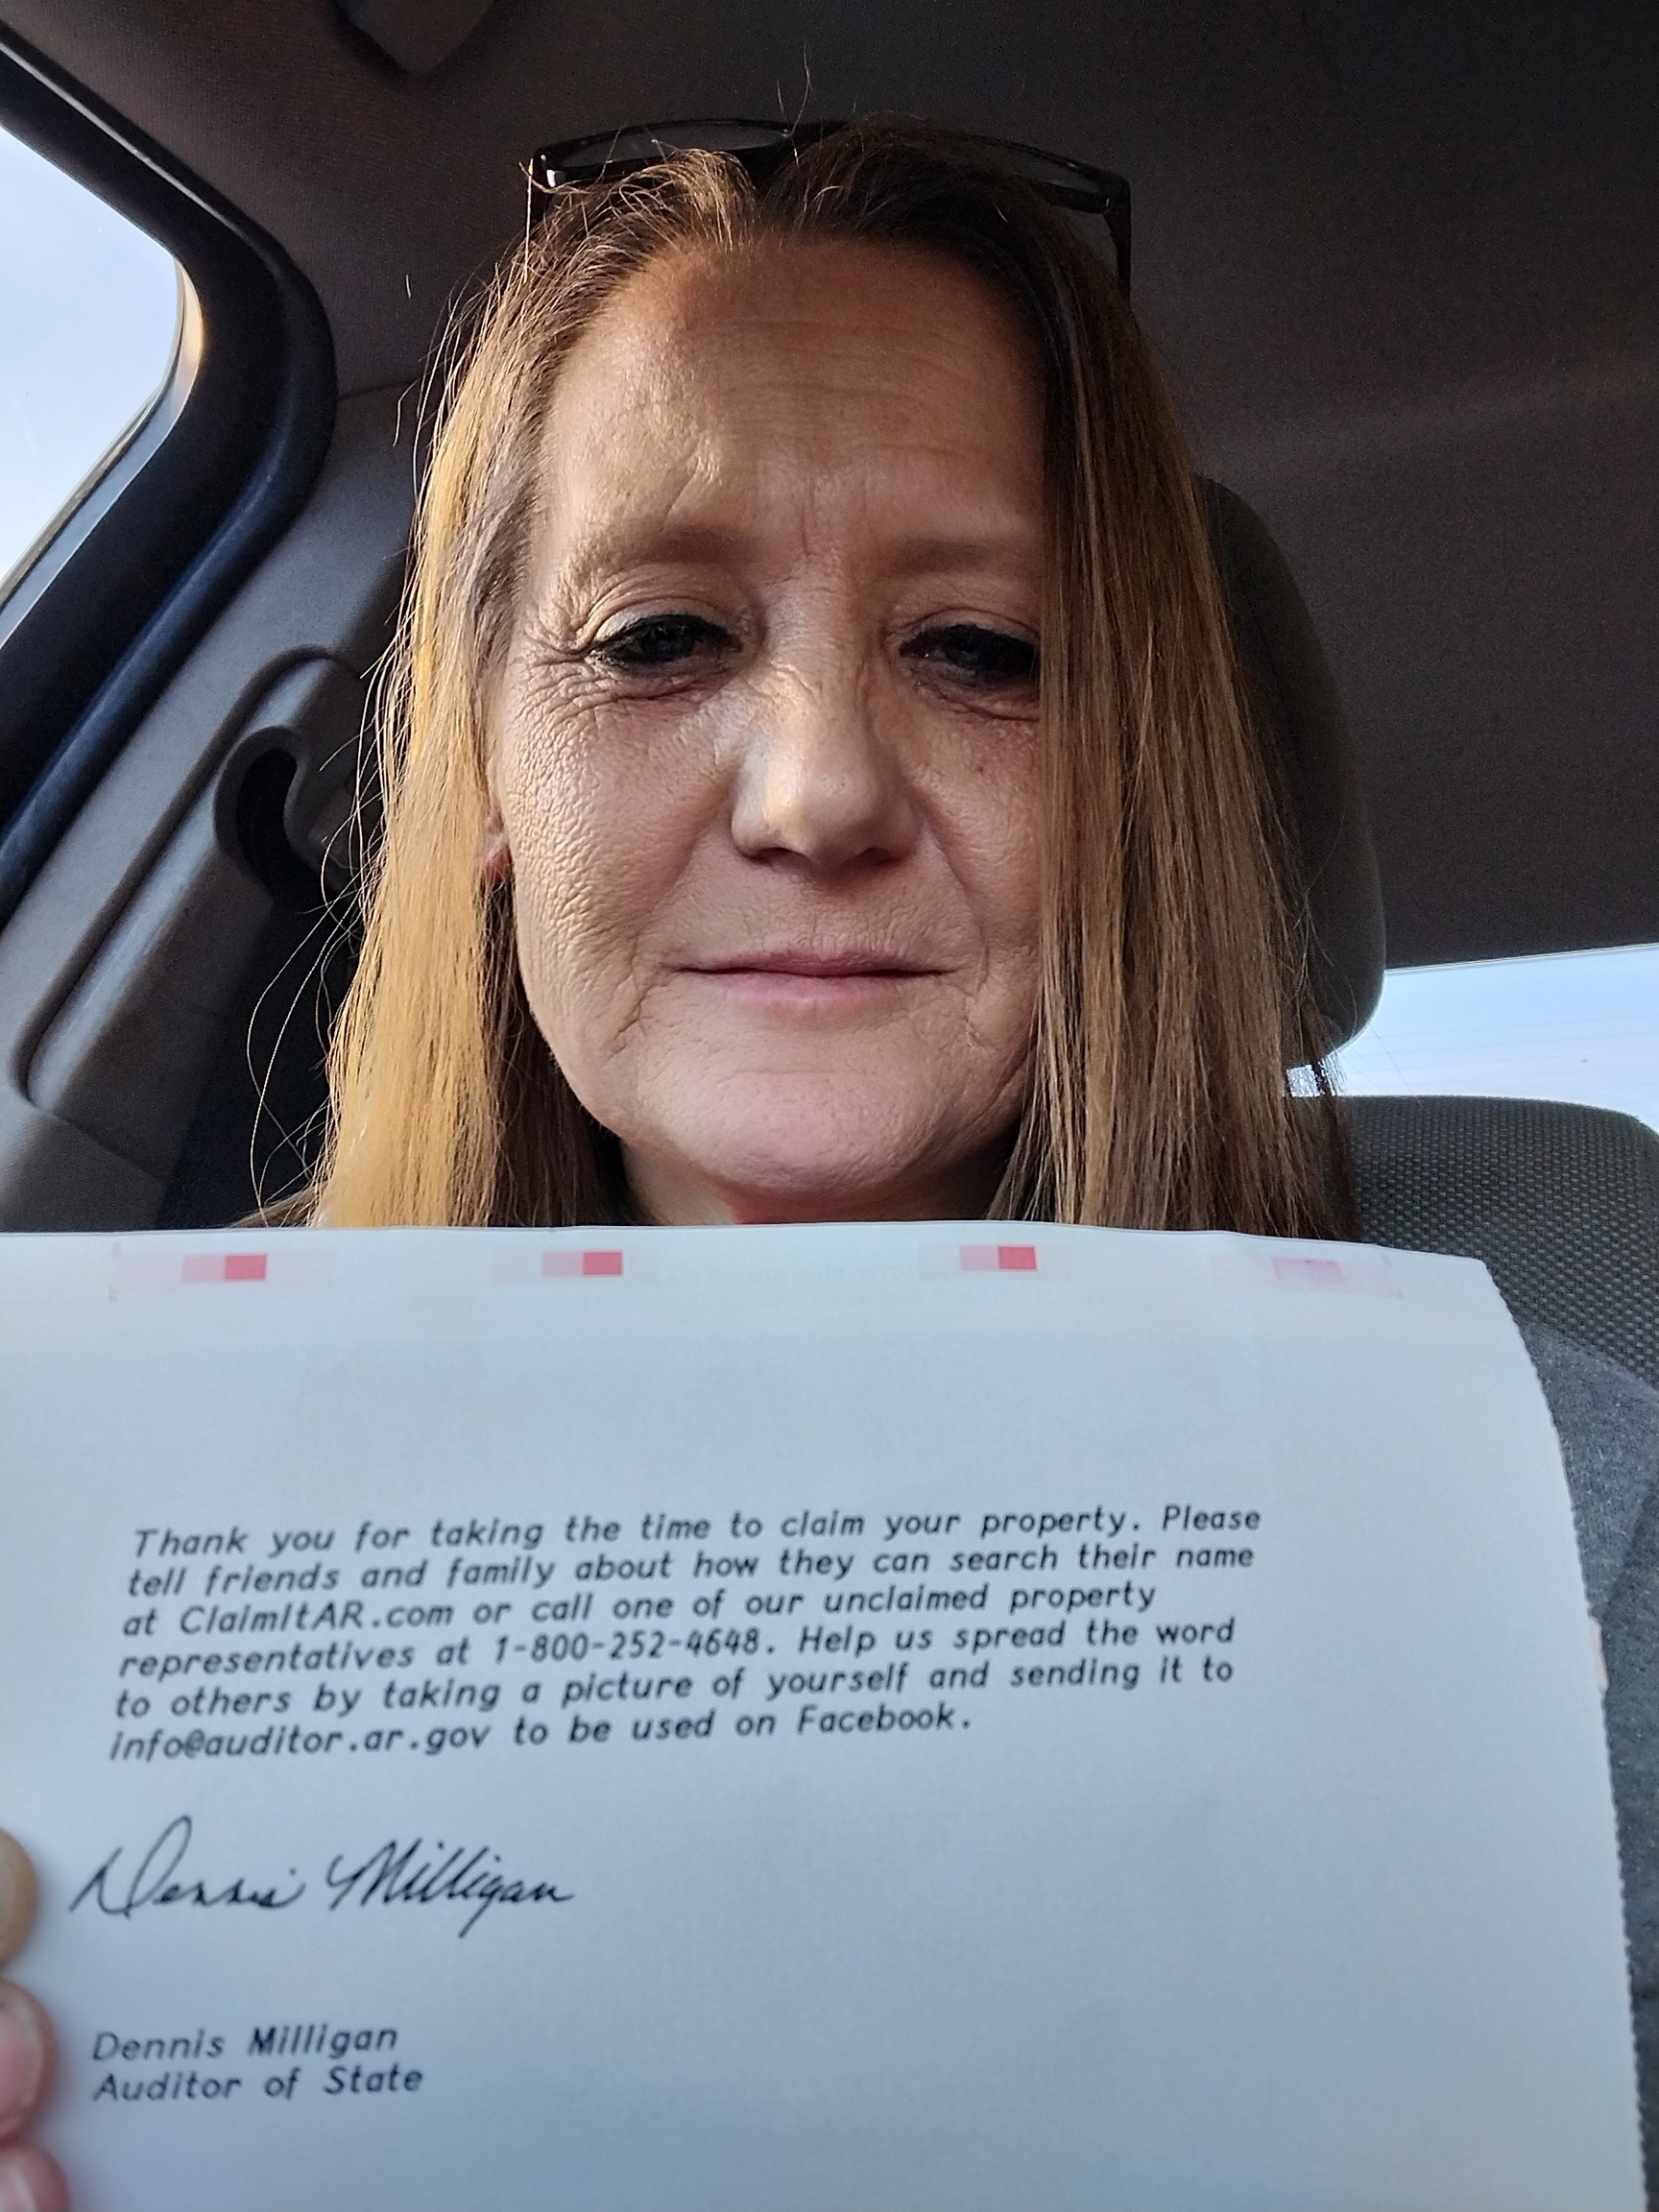 Thank you for taking the time to claim your property. Please
tell friends and family about how they can search their name
at ClaimItAR.com or call one of our unclaimed property
representatives at 1-800-252-4648. Help us spread the word
to others by taking a picture of yourself and sending it to
info@auditor.ar.gov to be used on Facebook.
Dennis Milligan
Dennis Milligan
Auditor of State